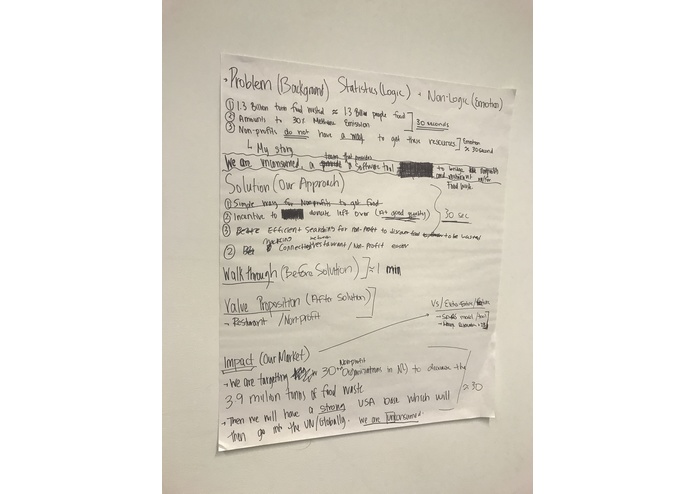 Problem (Background) Statistics (Logic) + Non-Logic (Emotion)
① 1.3 Billion turn food wasted ≈ 1.3 Billion people food
② Amounts to 30% Methane Emission
30 seconds
③ Non-profits do not have a way to get these resources
Emotion ≈ 30 second
↳ My story
We are unconsumed, a software tool to bring
and restaurant
Food bank
Solution (Our Approach)
① Simple way for Non-profits to get food
② Incentive to donate left over (still good quality)
30 sec
③ Efficient searching for non-profit to discover food to be wasted
② restaurant / Non-profit easier
Walkthrough (Before Solution) ≈ 1 min
Value Proposition (After Solution)
→ Restaurant / Non-profit
Impact (Our Market)
→ We are targeting 30 Nonprofit Organizations in NJ to decrease the
3.9 million turns of food waste
≈ 30
→ Then we will have a strong USA base which will
then go into the UN/Globally. We are Unconsumed.